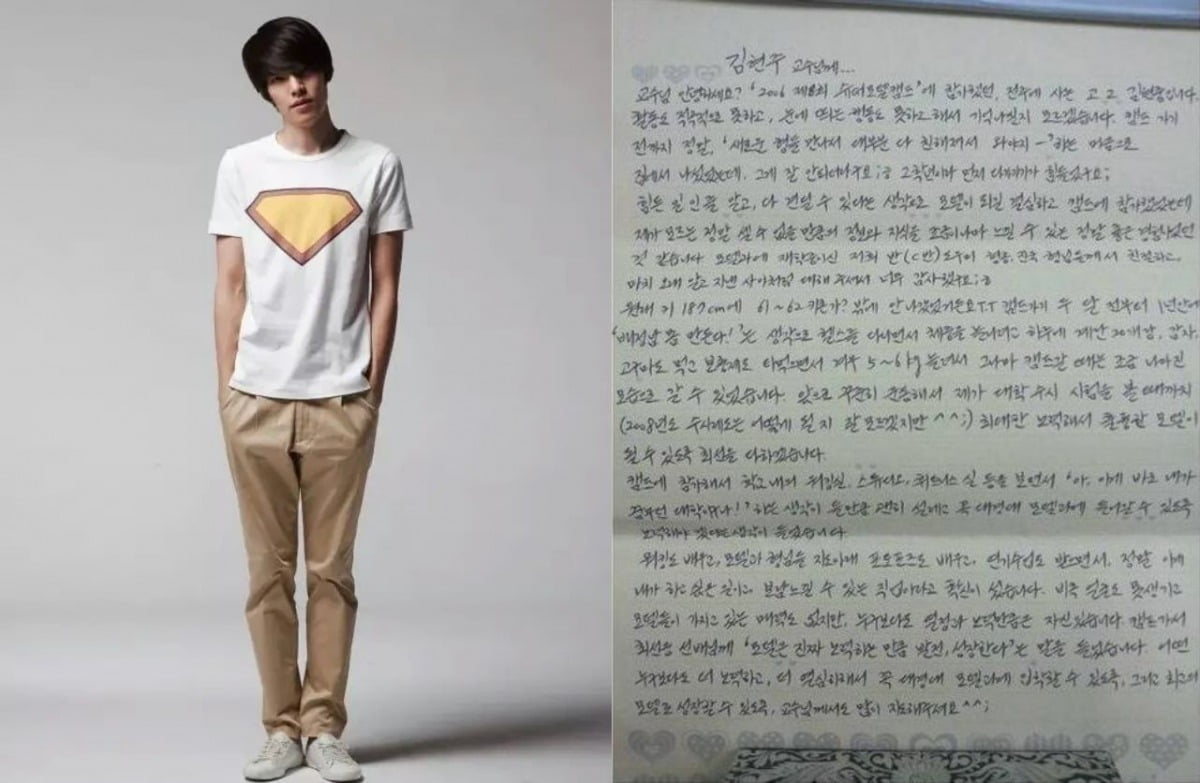 김현주 교수님께...
교수님 안녕하세요? '2006 제8회 슈퍼모델캠프'에 참가했던, 전주에 사는 고2 김현중입니다
활동도 적극적으로 못하고, 눈에 띄는 행동도 못하고 해서 기억나실지 모르겠습니다. 캠프 가기
전까지 정말, '새로운 형들 만나서 대부분 다 친해져서 와야지~'하는 마음으로
집에서 나섰었는데, 그게 잘 안되더라구요;ㅎ 고학년이라 먼저 다가가기 힘들었구요;
힘든 일인줄 알고, 다 견딜 수 있다는 생각으로 모델이 되길 결심하고 캠프에 참가했었는데
제가 모르는 정말 셀 수 없을 만큼의 정보와 지식을 조금이나마 느낄 수 있는 정말 좋은 경험이었던
것 같습니다. 모델과에 재학중이신 저희 반(C반) 도우미 형들, 진국 형님들께서 친절하고,
마치 오래 알고 지낸 사이처럼 대해 주셔서 너무 감사했구요;ㅎ
원래 키 187cm에 61~62키론가? 밖에 안나갔었거든요T.T 캠프가기 두 달 전부터 1년안에
'배정남 몸 만든다!'는 생각으로 헬스를 다니면서 체중을 불리려고 하루에 계란 20개씩, 감자,
고구마도 먹고 보충제도 타먹으면서 겨우 5~6kg 불려서 그나마 캠프갈 때는 조금 나아진
모습으로 갈 수 있었습니다. 앞으로 꾸준히 운동해서 제가 대학 수시 시험을 볼 때까지
(2008년도 수시제도는 어떻게 될 지 잘 모르겠지만^^;) 최대한 노력해서 훌륭한 모델이
될 수 있도록 최선을 다하겠습니다.
캠프에 참가해서 학교 내의 워킹실, 스튜디오, 휘트니스 실 등을 보면서 '아, 이게 바로 내가
꿈꾸던 대학이구나!'하는 생각이 들만큼 괜히 설레고 꼭 대경대 모델과에 들어갈 수 있도록
노력해야 겠다는 생각이 들었습니다.
워킹도 배우고, 모델과 형님들 지도아래 포토포즈도 배우고, 연기수업도 받으면서, 정말 이게
내가 하고 싶은 일이고 보람느낄 수 있는 직업이라고 확신이 섰습니다. 비록 얼굴도 못생기고
모델들이 가지고 있는 매력도 없지만, 누구보다도 열정과 노력만큼은 자신있습니다. 캠프가서
최선용 선배님께 '모델은 진짜 노력하는 만큼 발전, 성장한다'는 말을 들었습니다. 어떤
누구보다도 더 노력하고, 더 열심히해서 꼭 대경대 모델과에 입학할 수 있도록, 그리고 최고의
모델로 성장할 수 있도록, 교수님께서도 많이 지도해주세요^^;